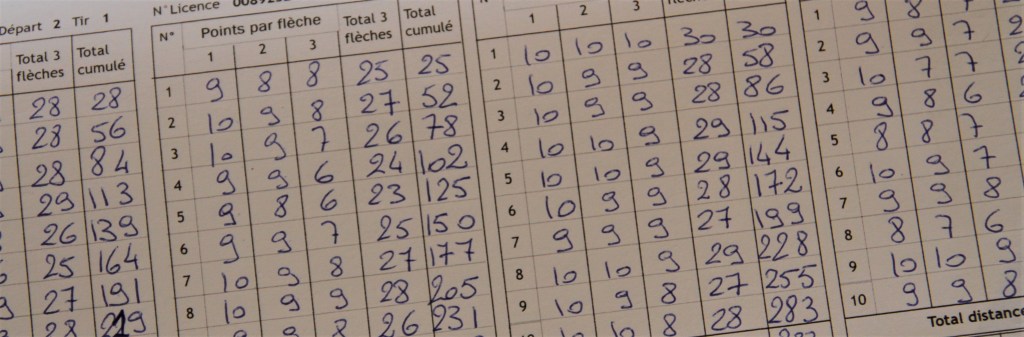 Départ 2 Tir 1
Total 3 Total
flèches cumulé
28 28
28 56
28 84
29 113
26 139
25 164
27 191
28 219
N° Licence
N° Points par flèche Total 3 Total
1 2 3 flèches cumulé
1 9 8 8 25 25
2 10 9 8 27 52
3 10 9 7 26 78
4 9 9 6 24 102
5 9 8 6 23 125
6 9 9 7 25 150
7 10 9 8 27 177
8 10 9 9 28 205
9 9 8 26 231
1 2 3
1 10 10 10 30 30
2 10 9 9 28 58
3 10 9 9 28 86
4 10 10 9 29 115
5 10 10 9 29 144
6 10 9 9 28 172
7 9 9 9 27 199
8 10 10 9 29 228
9 10 9 8 27 255
10 8 28 283
1 9 8 7
2 9 9 7
3 10 7 7
4 9 8 6
5 8 8 7
6 10 9 7
7 9 9 8
8 8 7 6
9 10 10 9
10 9 9 8
Total distance